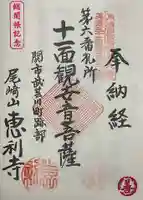 奉納経
第六番札所
十一面観世音菩薩
関市武芸川町跡部
尾崎山
恵利寺
総開帳記念